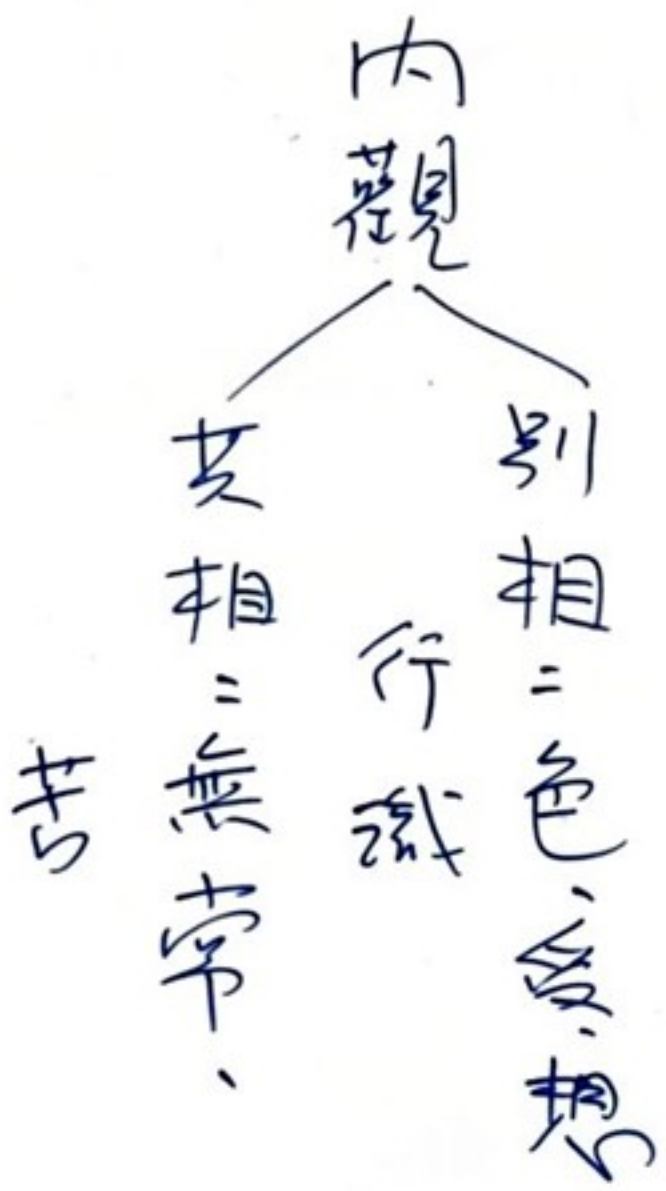 內觀
別相：色、受、想
行識
共相：無常、
苦